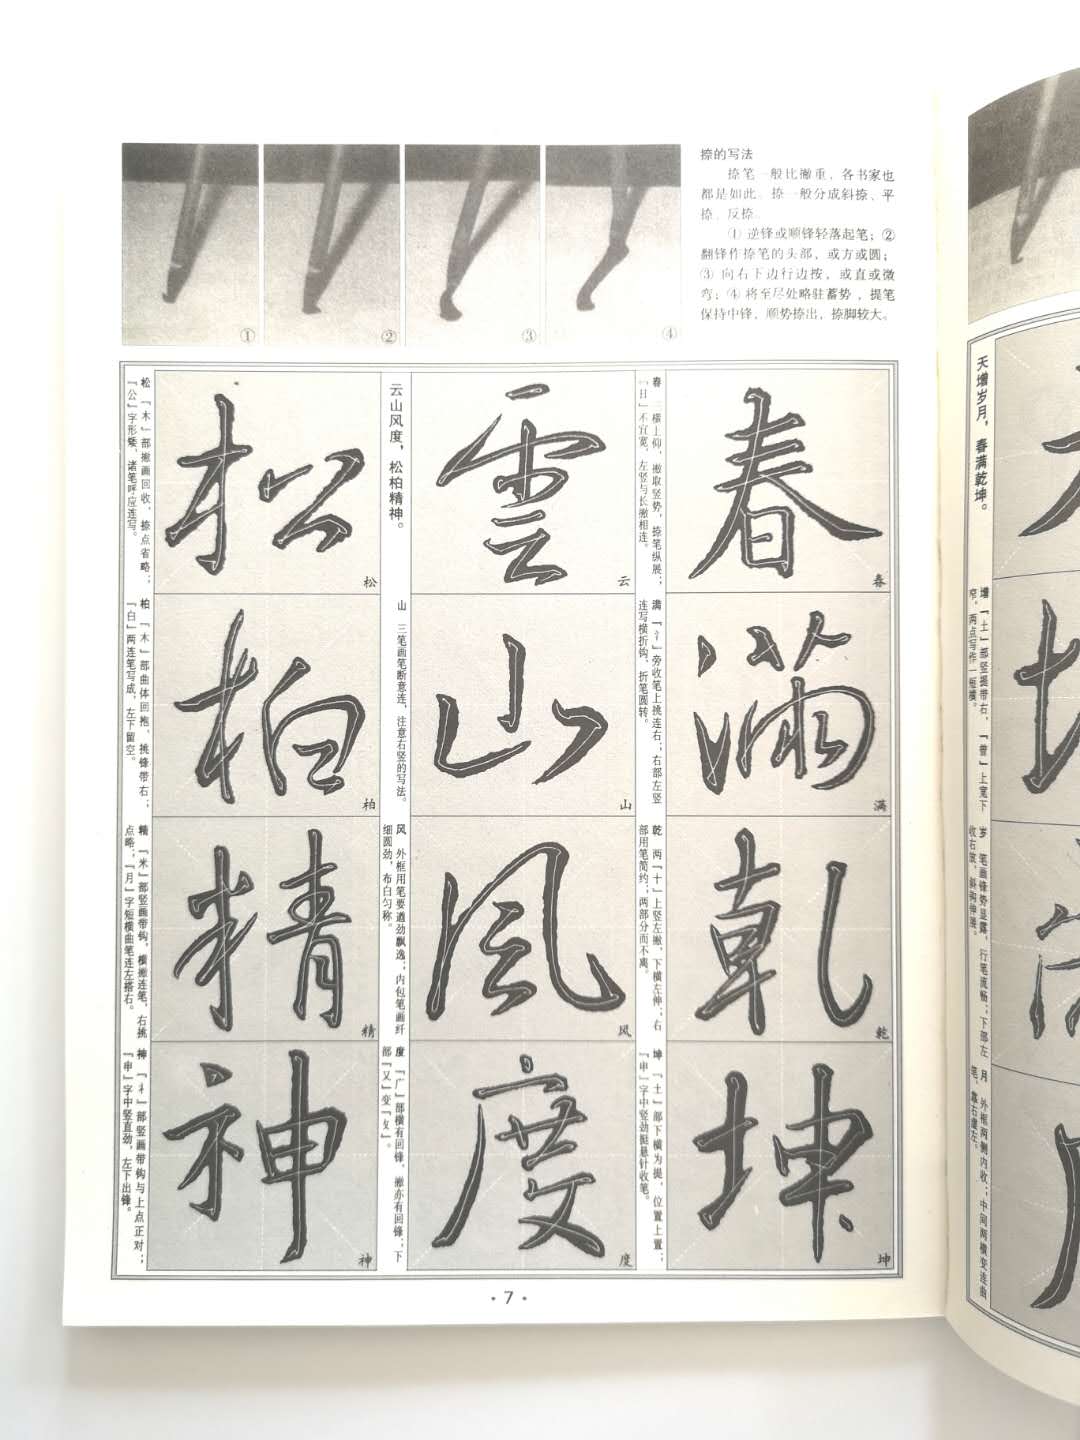 捺的写法
捺笔一般比撇重，各书家也
都是如此。捺一般分成斜捺、平
捺、反捺。
① 逆锋或顺锋轻落起笔；②
翻锋作捺笔的头部，或方或圆；
③ 向右下边行边按，或直或微
弯；④ 将至尽处略驻蓄势，提笔
保持中锋，顺势捺出，捺脚较大。
①
②
③
④
春
满
乾
坤
春 三横上仰，撇取竖势，捺笔纵展；
「日」不宜宽，左竖与长撇相连。
满 「氵」旁收笔上挑连右；右部左竖
连写横折钩，折笔圆转。
乾 两「十」上竖左撇，下横左伸；右
部用笔简约；两部分而不离。
坤 「土」部下横为提，位置上置；
「申」字中竖劲挺悬针收笔。
春
满
乾
坤
雲
山
風
度
云
山
风
度
云山风度，松柏精神。
山 三笔画笔断意连，注意右竖的写法。
风 外框用笔要遒劲飘逸；内包笔画纤
细圆劲，布白匀称。
度 「广」部横有回锋，撇亦有回锋；下
部「又」变「攵」。
松
柏
精
神
松
柏
精
神
松 「木」部撇画回收，捺点省略；
「公」字形矮，诸笔呼应连写。
柏 「木」部曲体回抱，挑锋带右；
「白」两连笔写成，左下留空。
精 「米」部竖画带钩，横撇连笔，右挑
点略；「月」字短横曲笔连左搭右。
神 「礻」部竖画带钩与上点正对；
「申」字中竖直劲，左下出锋。
·7·
天增岁月，春满乾坤。
增 「土」部竖提带右，「曾」上宽下
窄，两点写作一短横。
岁 笔画锋势显露，行笔流畅；下部左
收右放，斜钩伸展。
月 外框两侧内收；中间两横变连曲
笔，靠右虚左。